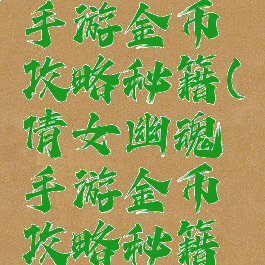 手游金币
攻略秘籍(
倩女幽魂
手游金币
攻略秘籍